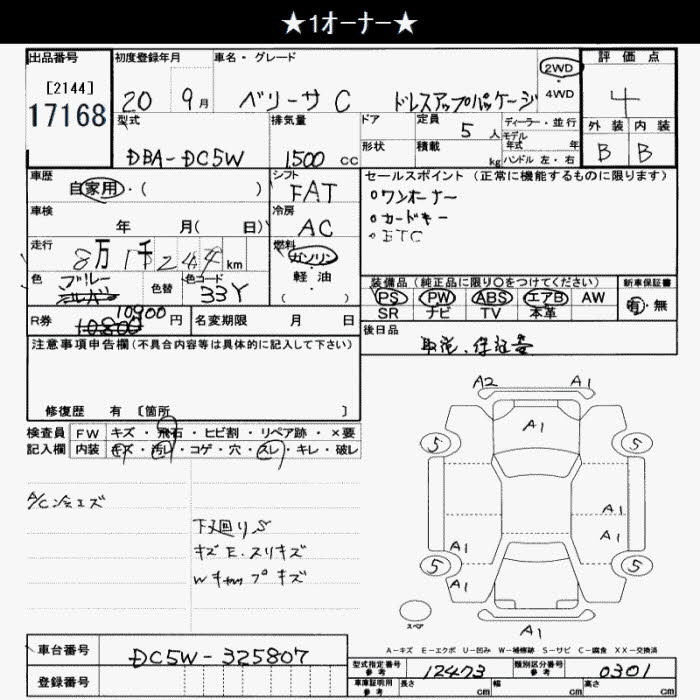 ★1オーナー★
出品番号 初度登録年月 車名・グレード 2WD ・4WD 評価点
[2144] 17168 20 9月 ベリーサ C ドレスアップパッケージ 4
型式 排気量 ドア 定員 5人 ディーラー・並行 外装 内装
モデル年式 年
DBA-DC5W 1500 CC 形状 積載 kg ハンドル 左・右 B B
車歴 シフト セールスポイント(正常に機能するものに限ります)
自家用・( ) FAT ○ワンオーナー
車検 冷房 ○カードキー
年 月( 日) AC ○ETC
走行 燃料
8万1千244km ガソリン
色 ブルー シルバー 色替 色コード 33Y 軽・油 ( ) 装備品(純正品に限り○をつけてください) 新車保証書
PS PW ABS エアB AW 有・無
SR ナビ TV 本革
R券 10900 10800 円 名変期限 月 日 後日品
注意事項申告欄(不具合内容等は具体的に記入して下さい) 取説、保証書
修復歴 有 [箇所 ]
検査員 FW キズ・飛石・ヒビ割・リペア跡・×要
記入欄 内装 キズ・汚レ・コゲ・穴・スレ・キレ・破レ
A/C冷エズ
下廻りS
キズE.スリキズ
Wキャップキズ
A2 A1
A1
5 5
A1
A1 A1
5 5
A1 A1
スペア A1
A-キズ E-エクボ U-凹み W-補修跡 S-サビ C-腐食 XX-交換済
車台番号 DC5W-325807 型式指定番号 参考 12473 類別区分番号 参考 0301
登録番号 車庫証明用 参考 長さ cm 幅 cm 高さ cm